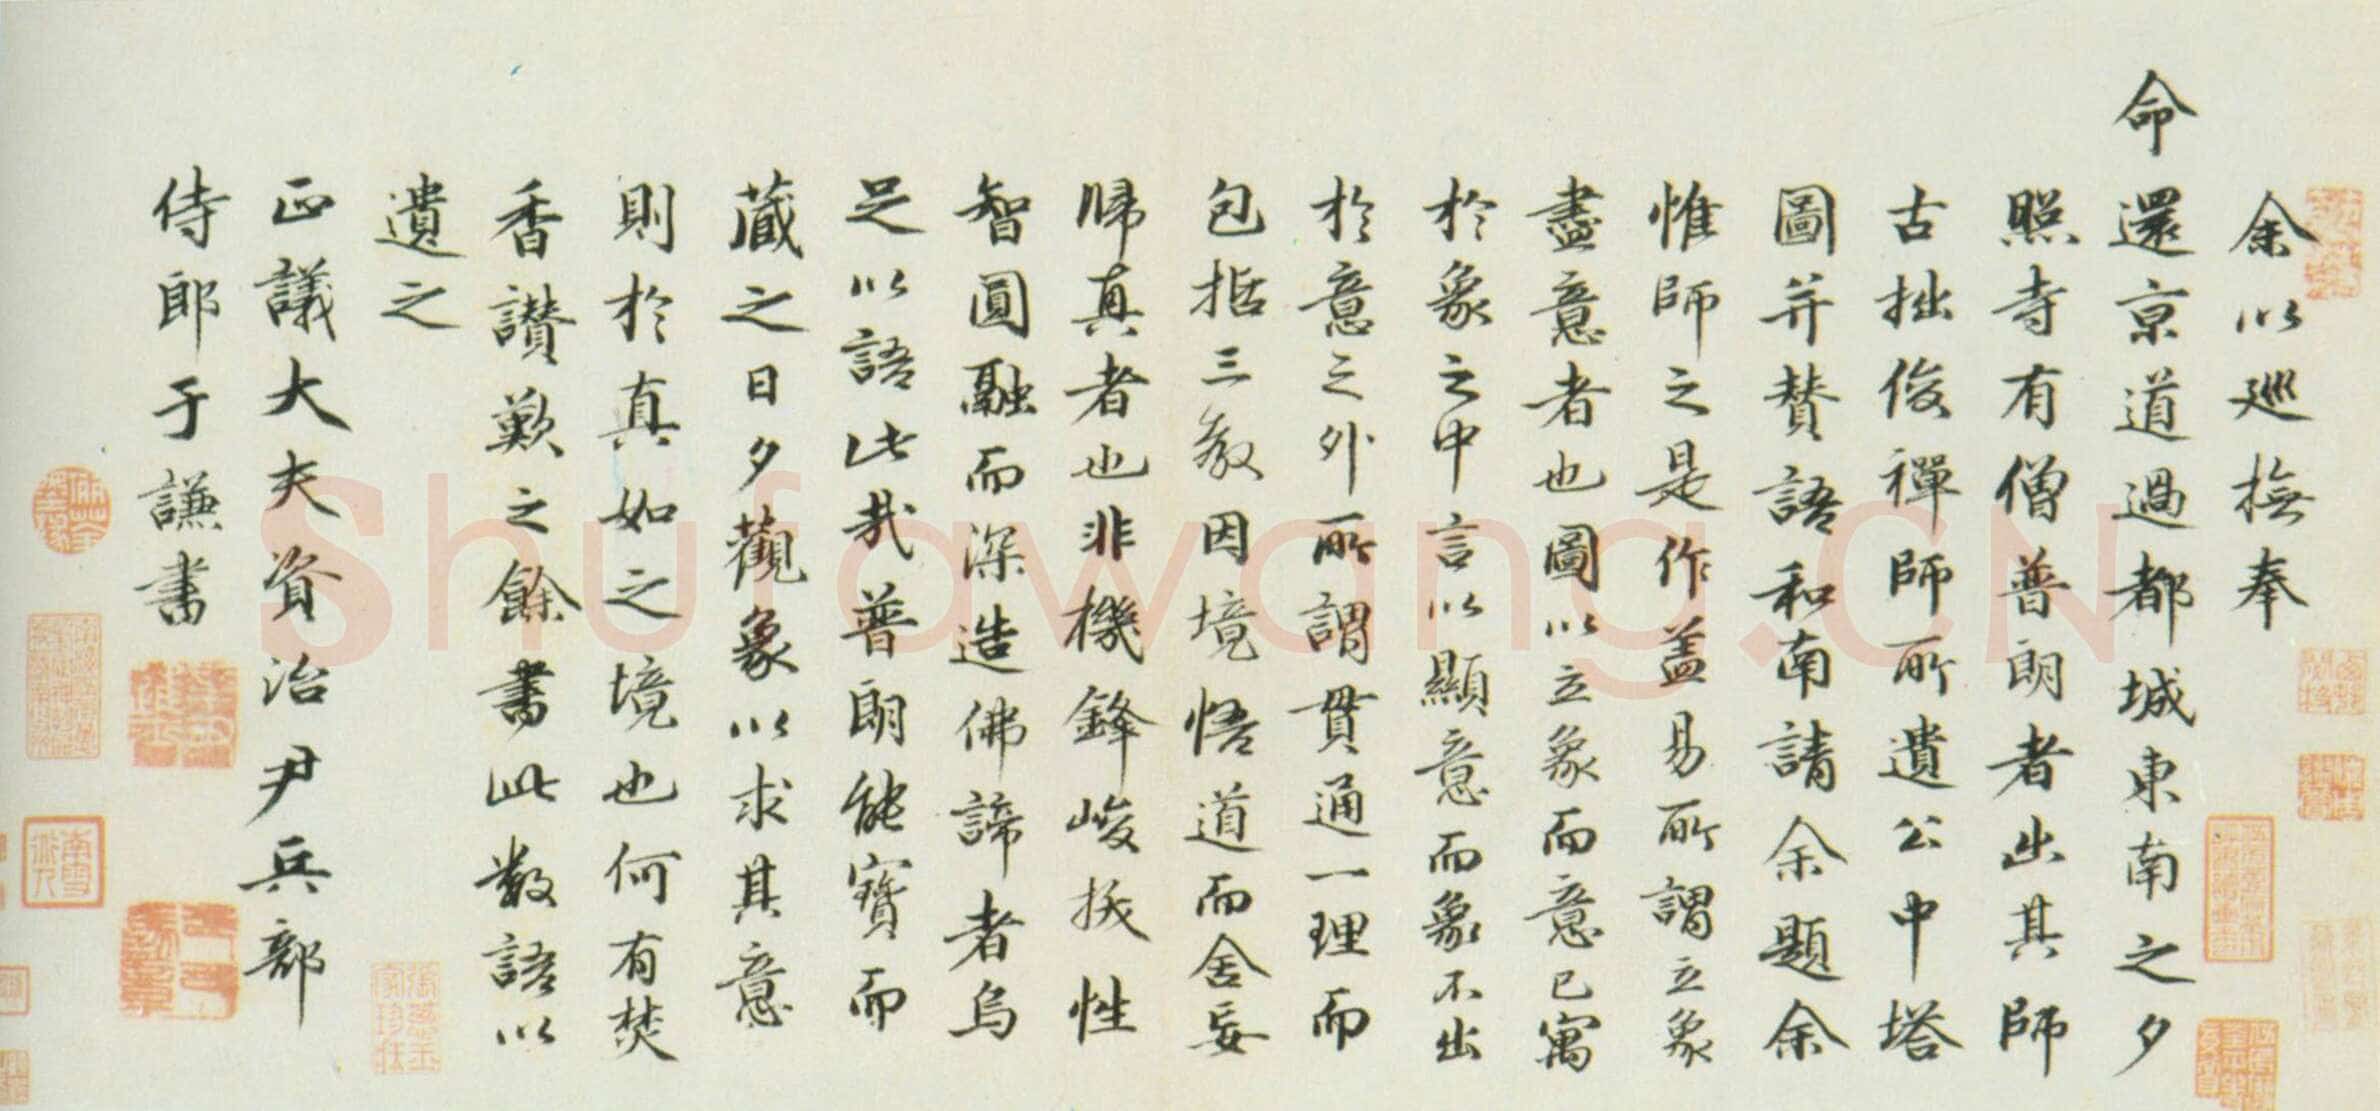 余以廵撫奉
命還京道過都城東南之夕
照寺有僧普朗者出其師
古拙俊禪師所遺公中塔
圖并賛語和南請余題余
惟師之是作盖易所謂立象
盡意者也圖以立象而意已寓
於象之中言以顯意而象不出
於意之外所謂貫通一理而
包括三教因境悟道而舍妄
歸真者也非機鋒峻拔性
智圓融而深造佛諦者烏
足以語此哉普朗能寶而
蔵之日夕觀象以求其意
則於真如之境也何有焚
香讃歎之餘書此數語以
遺之
正議大夫資治尹兵部
侍郎于謙書
Shufawang.CN